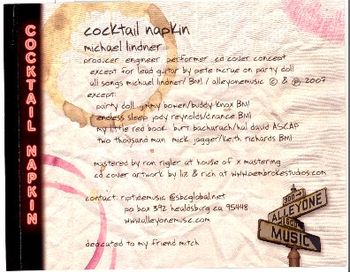 COCKTAIL NAPKIN
cocktail napkin
michael lindner
producer engineer performer cd cover concept
except for lead guitar by pete mcrae on party doll
all songs michael lindner/ BMI / alleyonemusic © & ℗ 2007
except:
party doll jimmy bowen/buddy knox BMI
endless sleep jody reynolds/nance BMI
my little red book burt bacharach/hal david ASCAP
two thousand man mick jagger/keith richards BMI
mastered by ron rigler at house of x mastering
cd cover artwork by liz & rich at www.pembrokestudios.com
contact: riptidemusic @sbcglobal.net
po box 392 healdsburg ca 95448
www.alleyonemusic.com
dedicated to my friend mitch
ALLEYONE
MUSIC